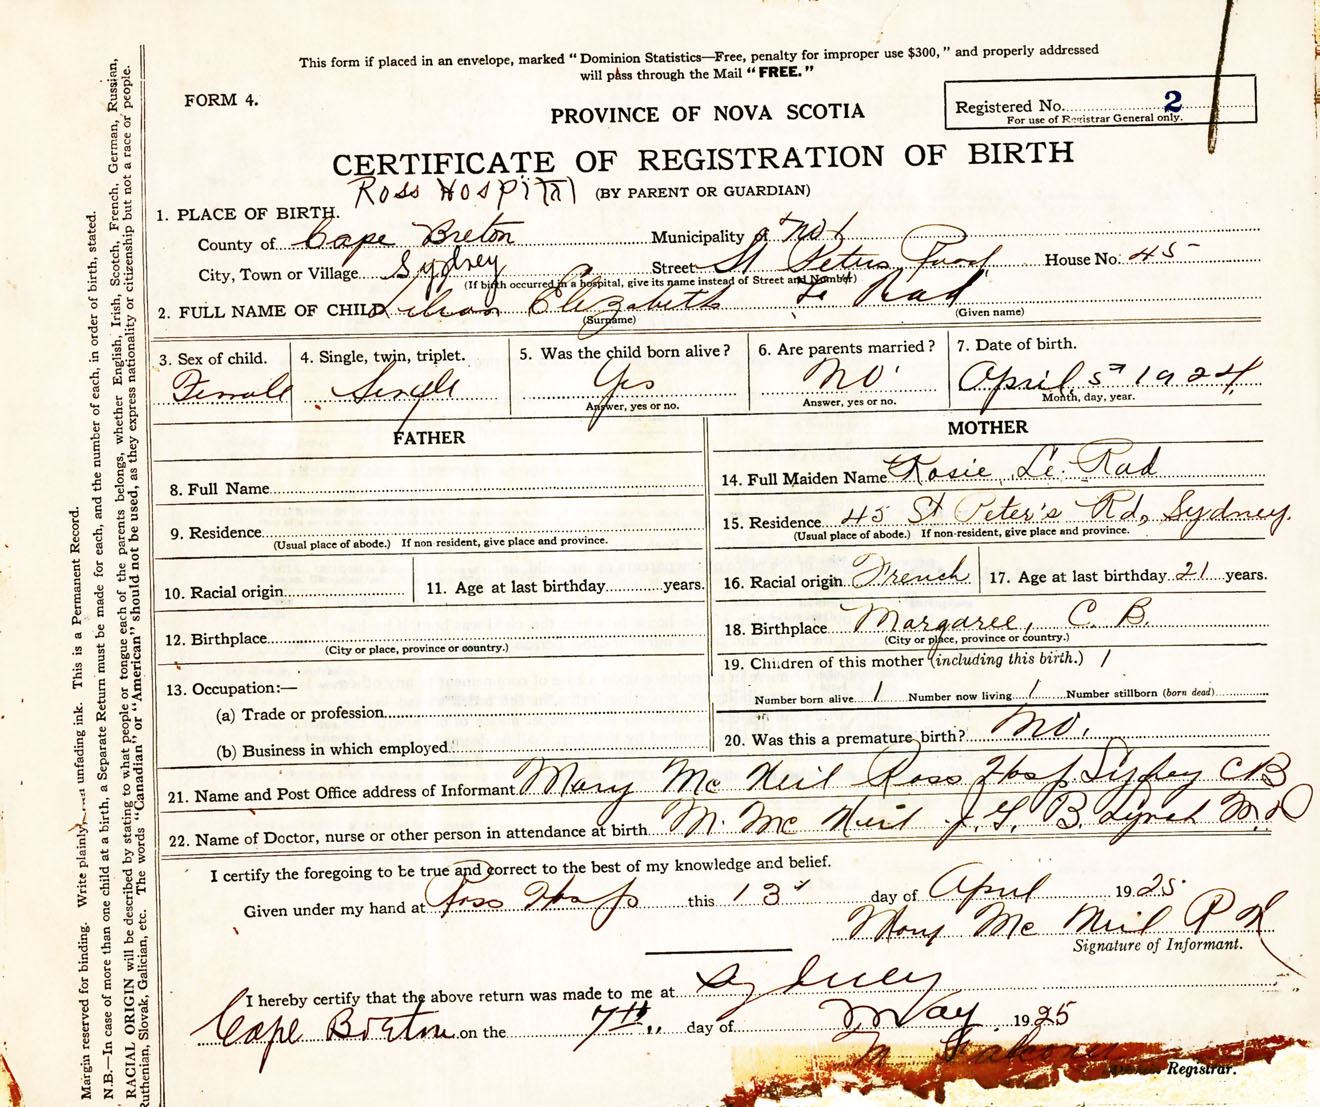 This form if placed in an envelope, marked "Dominion Statistics—Free, penalty for improper use $300," and properly addressed
will pass through the Mail "FREE."
FORM 4.
PROVINCE OF NOVA SCOTIA
Registered No. 2
For use of Registrar General only.
CERTIFICATE OF REGISTRATION OF BIRTH
Ross Hospital (BY PARENT OR GUARDIAN)
1. PLACE OF BIRTH.
County of Cape Breton Municipality of
City, Town or Village Sydney Street St Peters Road House No. 45
(If birth occurred in a hospital, give its name instead of Street and Number)
2. FULL NAME OF CHILD Lilian Elizabeth Le Rad
(Surname) (Given name)
3. Sex of child. 4. Single, twin, triplet. 5. Was the child born alive? 6. Are parents married? 7. Date of birth.
Female Single Yes No April 5th 1924
Answer, yes or no. Answer, yes or no. Month, day, year.
FATHER MOTHER
8. Full Name 14. Full Maiden Name Rosie Le Rad
9. Residence 15. Residence 45 St Peter's Rd, Sydney.
(Usual place of abode.) If non-resident, give place and province. (Usual place of abode.) If non-resident, give place and province.
10. Racial origin 11. Age at last birthday years. 16. Racial origin French 17. Age at last birthday 21 years.
12. Birthplace 18. Birthplace Margaree, C. B.
(City or place, province or country.) (City or place, province or country.)
13. Occupation:— 19. Children of this mother (including this birth.) 1
(a) Trade or profession Number born alive 1 Number now living 1 Number stillborn (born dead)
(b) Business in which employed 20. Was this a premature birth? No.
21. Name and Post Office address of Informant Mary Mc Neil Ross Hosp. Sydney CB
22. Name of Doctor, nurse or other person in attendance at birth M. Mc Neil J. G. B. Lynch M.D
I certify the foregoing to be true and correct to the best of my knowledge and belief.
Given under my hand at Ross Hosp this 13 day of April 1925
Mary Mc Neil R N
Signature of Informant.
I hereby certify that the above return was made to me at Sydney
Cape Breton on the 7th day of May 1925
Registrar.
Margin reserved for binding. Write plainly unfading ink. This is a Permanent Record.
N.B.—In case of more than one child at a birth, a Separate Return must be made for each, and the number of each, in order of birth, stated.
RACIAL ORIGIN will be described by stating to what people or tongue each of the parents belongs, whether English, Irish, Scotch, French, German, Russian,
Ruthenian, Slovak, Galician, etc. The words "Canadian" or "American" should not be used, as they express nationality or citizenship but not a race or people.